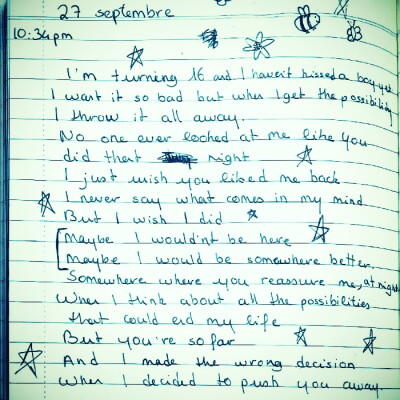 27 septembre
10:34pm
I'm turning 16 and I haven't kissed a boy yet
I want it so bad but when I get the possibility
I throw it all away.
No one ever looked at me like you
did that night
I just wish you liked me back
I never say what comes in my mind
But I wish I did
Maybe I wouldn't be here
Maybe I would be somewhere better.
Somewhere where you reassure me, at night
When I think about all the possibilities
that could end my life
But you're so far
And I made the wrong decision
When I decided to push you away.